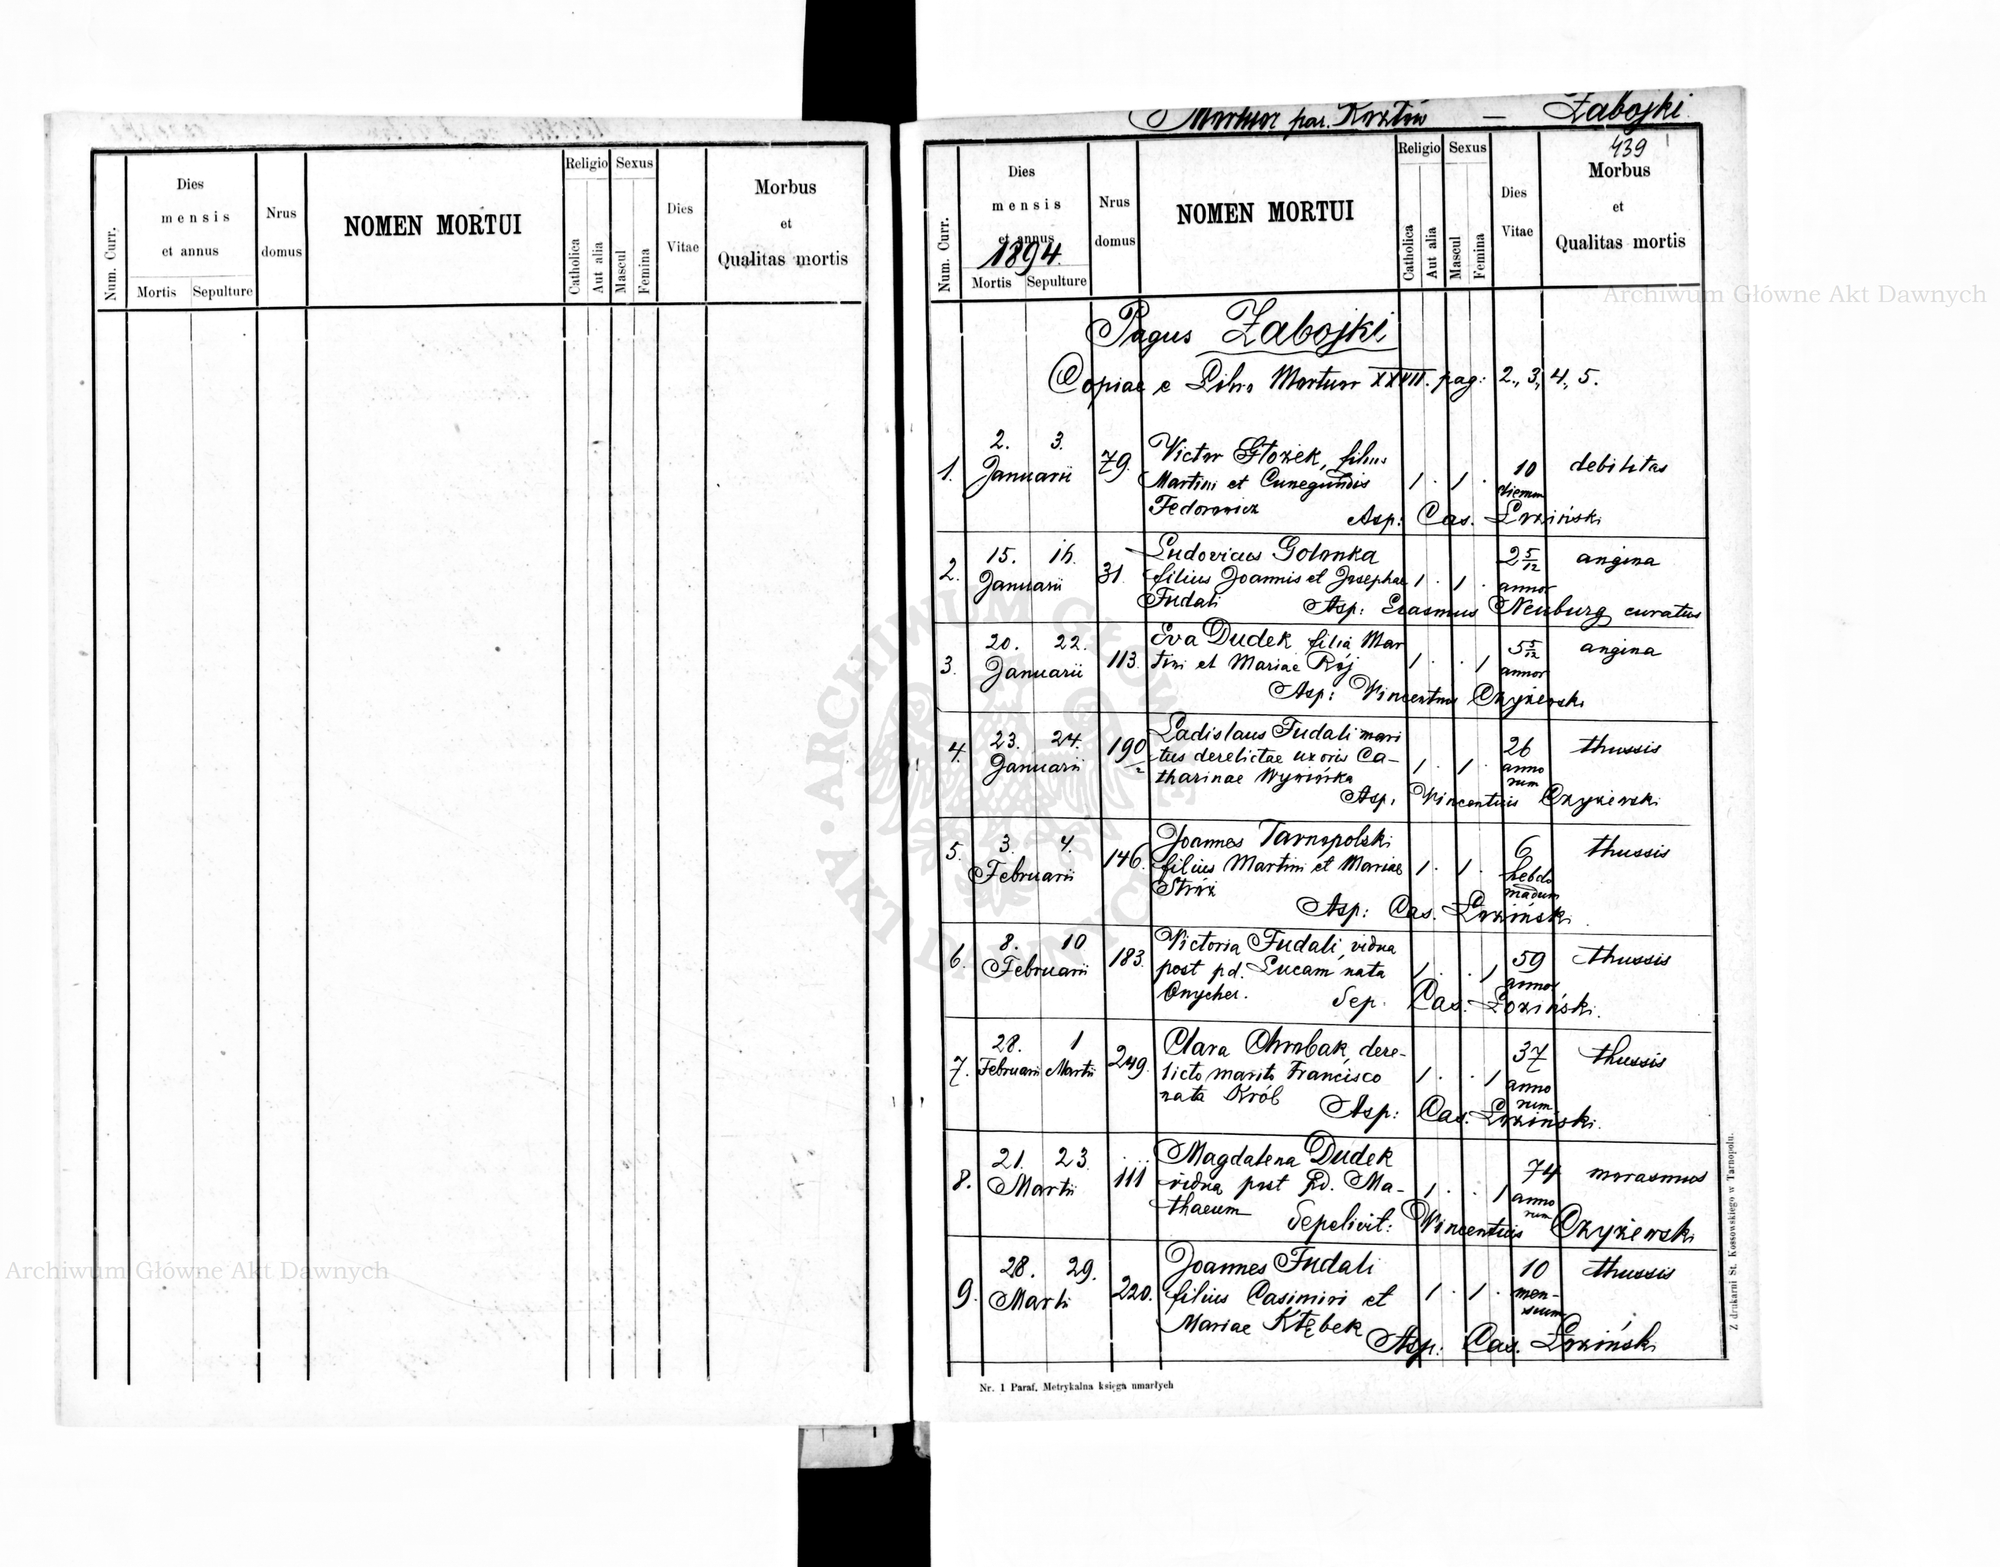 Religio Sexus
Dies
mensis
et annus
Nrus
domus
NOMEN MORTUI
Num. Curr.
Mortis Sepulture
Catholica
Aut alia
Mascul
Femina
Dies
Vitae
Morbus
et
Qualitas mortis
Mortuor par. Kozłów — Zabojki
439
Religio Sexus
Dies
mensis
et annus
1894.
Nrus
domus
NOMEN MORTUI
Num. Curr.
Mortis Sepulture
Catholica
Aut alia
Mascul
Femina
Dies
Vitae
Morbus
et
Qualitas mortis
Pagus Zabojki
Copiae e Libro Mortuor XXVII. pag: 2., 3, 4, 5.
2. 3.
1. Januarii 79.
Victor Głożek, filius
Martini et Cunegundis
Fedorowicz
1 . 1 . 10 dierum debilitas
Asp: Cas. Łoziński
15. 16.
2. Januarii 31.
Ludovicus Golonka
filius Joannis et Josephae
Fudali
1 . 1 . 2 5/12 annor angina
Asp: Erasmus Neuburg curatus
20. 22.
3. Januarii 113.
Eva Dudek filia Mar
tini et Mariae Rój
1 . . 1 5 5/12 annor angina
Asp: Vincentius Czyżewski
23. 24.
4. Januarii 190
Ladislaus Fudali mari
tus derelictae uxoris Ca-
tharinae
1 . 1 . 26 anno
rum thussis
Asp. Vincentius Czyżewski
3. 4.
5. Februarii 146.
Joannes Tarnopolski
filius Martini et Mariae
Stróż
1 . 1 . 6 hebdo
madum thussis
Asp: Cas. Łoziński
8. 10
6. Februarii 183.
Victoria Fudali, vidua
post pd. Lucam nata
Onycher.
1 . . 1 59 annor thussis
Sep. Cas. Łoziński.
28. 1
7. Februarii Martii 249.
Clara Chrobak, dere-
licto marito Francisco
nata Król
1 . . 1 37 anno
rum thussis
Asp: Cas. Łoziński.
21. 23.
8. Martii 111
Magdalena Dudek
vidua post pd. Ma-
thaeum
1 . . 1 74 anno
rum marasmus
Sepelivit: Vincentius Czyżewski
28. 29.
9. Martii 220.
Joannes Fudali
filius Casimiri et
Mariae Kłębek
1 . 1 . 10 men-
sium thussis
Asp: Cas. Łoziński
Nr. 1 Paraf. Metrykalna księga umarłych
Z drukarni St. Kossowskiego w Tarnopolu.
Archiwum Główne Akt Dawnych
Archiwum Główne Akt Dawnych
ARCHIWUM GŁÓWNE AKT DAWNYCH